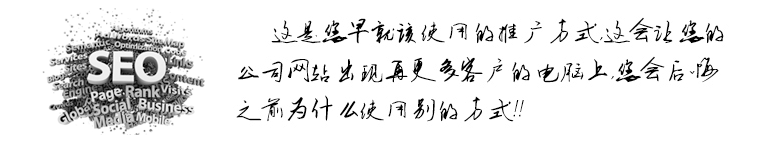 Optimization
Links
SEO
Content
Page Rank Visits
Global Social Business
Media Mobile
这是您早就该使用的推广方式,这会让您的
公司网站出现再更多客户的电脑上,您会后悔
之前为什么使用别的方式!!